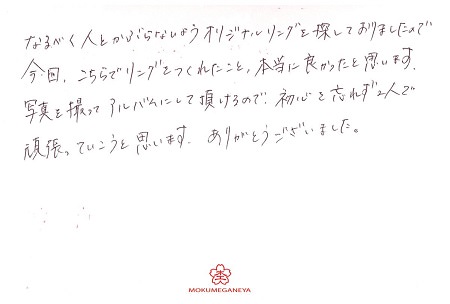 なるべく人とかぶらないようオリジナルリングを探しておりましたので
今回、こちらでリングをつくれたこと、本当に良かったと思います。
写真を撮って アルバムにして頂けるので、初心を忘れず2人で
頑張っていこうと思います。ありがとうございました。
MOKUMEGANEYA